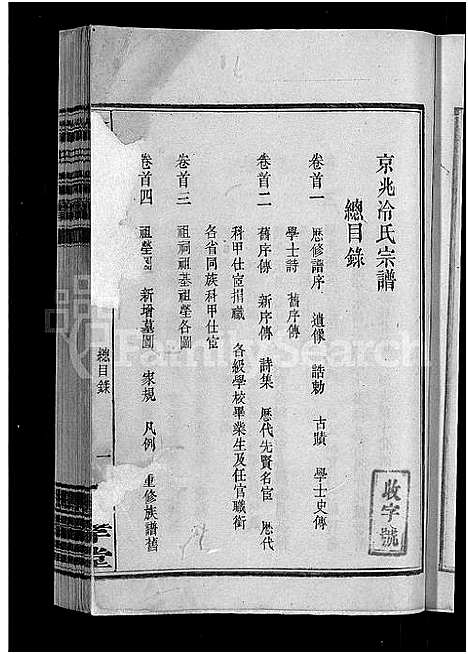 京兆冷氏宗譜
總目錄
卷首一 歷修譜序 遺像 誥勅 古蹟 學士史傳
學士詩 舊序傳
卷首二 舊序傳 新序傳 詩集 歷代先賢名宦 歷代
科甲仕宦捐職 各級學校畢業生及任官職銜
各省同族科甲仕宦
卷首三 祖祠祖基祖塋各圖
卷首四 祖塋圖 新增墓圖 家規 凡例 重修族譜舊
總目錄 一
堂
收字號
FamilySearch